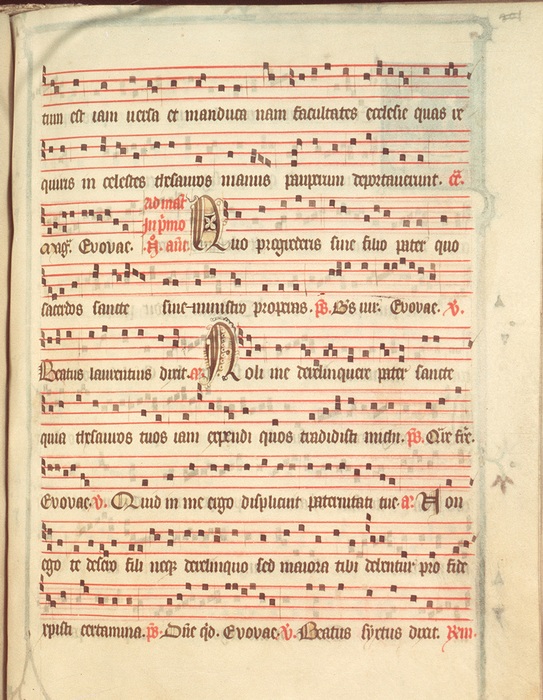 tum est iam uersa et manduca nam facultates ecclesie quas re
quiris in celestes thesauros manus pauperum deportauerunt. ct.
Euovae. Quo progrederis sine filio pater quo
sacerdos sancte sine ministro properas. ps. Euovae. v.
Beatus laurentius dixit. a. Noli me derelinquere pater sancte
quia thesauros tuos iam expendi quos tradidisti michi. ps.
Euovae. v. Quid in me ergo displicuit paternitati tue a. Non
ego te desero fili neque derelinquo sed maiora tibi debentur pro fide
xpisti certamina. ps. Dne qd. Euovae. v. Beatus syxtus dixit.